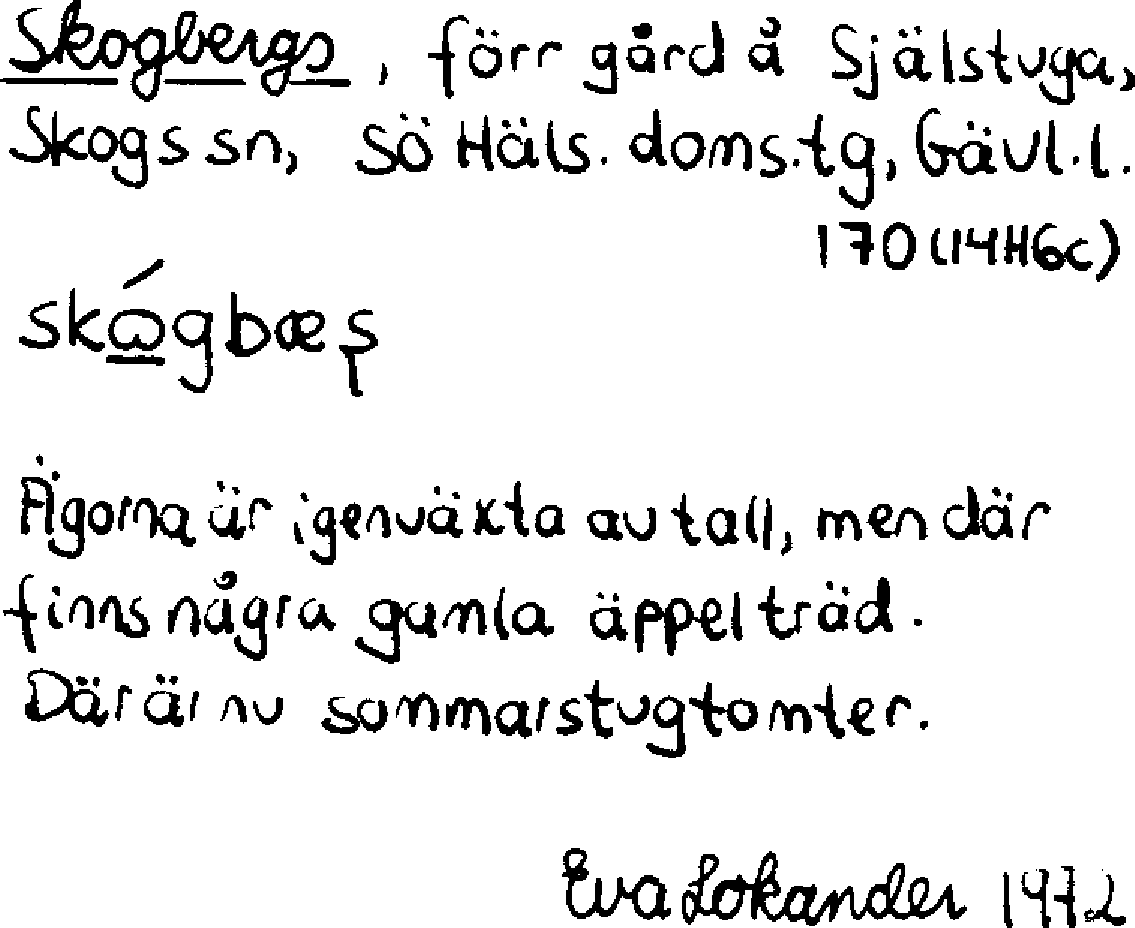 Skogbergs, förr gård å Själstuga,
Skogs sn, Sö Häls. doms.tg, Gävl.l.
170 (14H6c)
skɷ́gbæʂ
Ägorna är igenväxta av tall, men där
finns några gamla äppelträd.
Där är nu sommarstugtomter.
Eva Lokander 1972